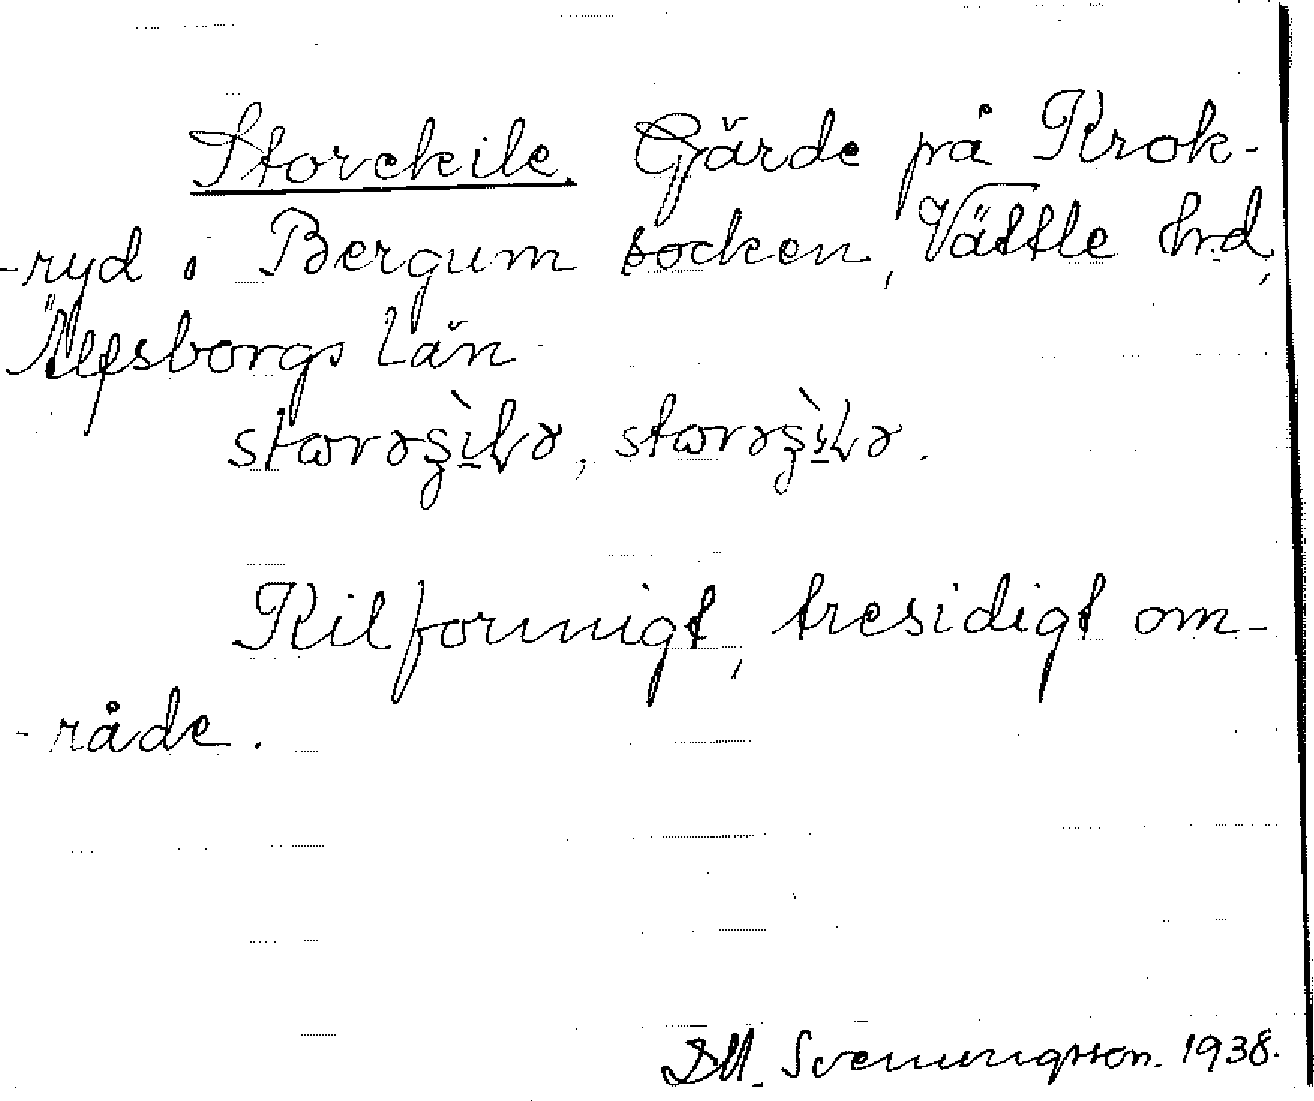 Storekile. Gärde på Krok-
-ryd i Bergum socken, Vättle hrd,
Älfsborgs län
Kilformigt, tresidigt om-
-råde.
Svenningsson. 1938.